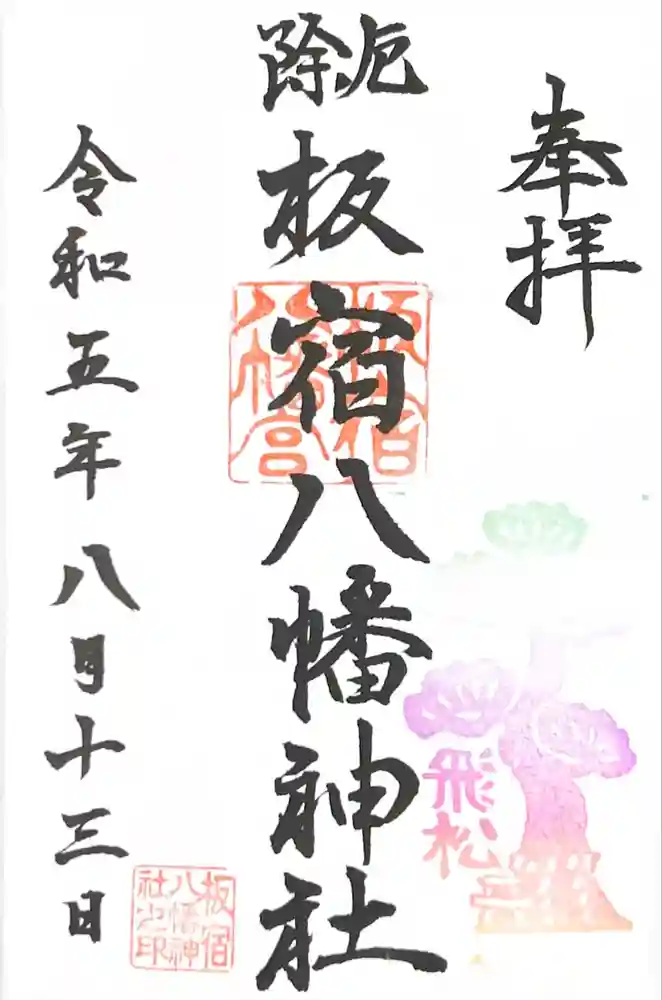 奉拝
厄除
板宿八幡神社
板宿
八幡宮
飛松
令和五年八月十三日
板宿
八幡神
社之印